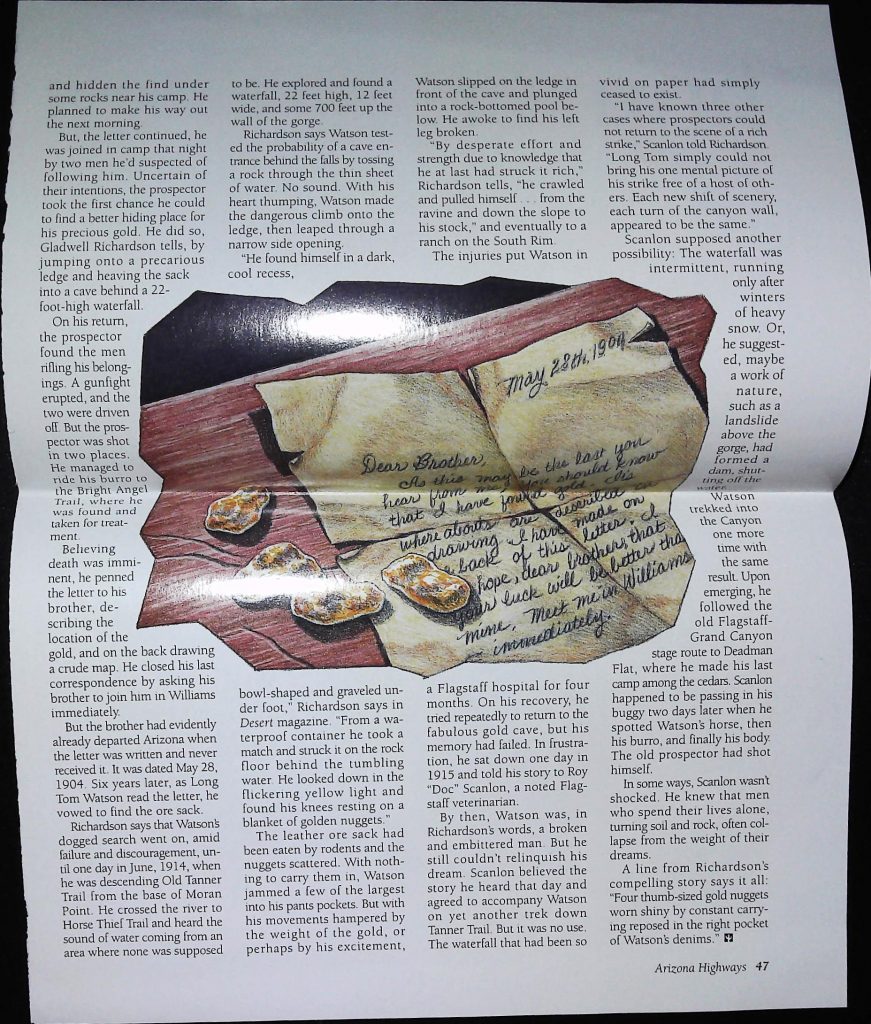 and hidden the find under
some rocks near his camp. He
planned to make his way out
the next morning.
But, the letter continued, he
was joined in camp that night
by two men he'd suspected of
following him. Uncertain of
their intentions, the prospector
took the first chance he could
to find a better hiding place for
his precious gold. He did so,
Gladwell Richardson tells, by
jumping onto a precarious
ledge and heaving the sack
into a cave behind a 22-
foot-high waterfall.
On his return,
the prospector
found the men
rifling his belong-
ings. A gunfight
erupted, and the
two were driven
off. But the pros-
pector was shot
in two places.
He managed to
ride his burro to
the Bright Angel
Trail, where he
was found and
taken for treat-
ment.
Believing
death was immi-
nent, he penned
the letter to his
brother, de-
scribing the
location of the
gold, and on the back drawing
a crude map. He closed his last
correspondence by asking his
brother to join him in Williams
immediately.
But the brother had evidently
already departed Arizona when
the letter was written and never
received it. It was dated May 28,
1904. Six years later, as Long
Tom Watson read the letter, he
vowed to find the ore sack.
Richardson says that Watson's
dogged search went on, amid
failure and discouragement, un-
til one day in June, 1914, when
he was descending Old Tanner
Trail from the base of Moran
Point. He crossed the river to
Horse Thief Trail and heard the
sound of water coming from an
area where none was supposed
to be. He explored and found a
waterfall, 22 feet high, 12 feet
wide, and some 700 feet up the
wall of the gorge.
Richardson says Watson test-
ed the probability of a cave en-
trance behind the falls by tossing
a rock through the thin sheet
of water. No sound. With his
heart thumping, Watson made
the dangerous climb onto the
ledge, then leaped through a
narrow side opening.
"He found himself in a dark,
cool recess,
bowl-shaped and graveled un-
der foot," Richardson says in
Desert magazine. "From a wa-
terproof container he took a
match and struck it on the rock
floor behind the tumbling
water. He looked down in the
flickering yellow light and
found his knees resting on a
blanket of golden nuggets."
The leather ore sack had
been eaten by rodents and the
nuggets scattered. With noth-
ing to carry them in, Watson
jammed a few of the largest
into his pants pockets. But with
his movements hampered by
the weight of the gold, or
perhaps by his excitement,
Watson slipped on the ledge in
front of the cave and plunged
into a rock-bottomed pool be-
low. He awoke to find his left
leg broken.
"By desperate effort and
strength due to knowledge that
he at last had struck it rich,"
Richardson tells, "he crawled
and pulled himself . . . from the
ravine and down the slope to
his stock," and eventually to a
ranch on the South Rim.
The injuries put Watson in
a Flagstaff hospital for four
months. On his recovery, he
tried repeatedly to return to the
fabulous gold cave, but his
memory had failed. In frustra-
tion, he sat down one day in
1915 and told his story to Roy
"Doc" Scanlon, a noted Flag-
staff veterinarian.
By then, Watson was, in
Richardson's words, a broken
and embittered man. But he
still couldn't relinquish his
dream. Scanlon believed the
story he heard that day and
agreed to accompany Watson
on yet another trek down
Tanner Trail. But it was no use.
The waterfall that had been so
vivid on paper had simply
ceased to exist.
"I have known three other
cases where prospectors could
not return to the scene of a rich
strike," Scanlon told Richardson.
"Long Tom simply could not
bring his one mental picture of
his strike free of a host of oth-
ers. Each new shift of scenery,
each turn of the canyon wall,
appeared to be the same."
Scanlon supposed another
possibility: The waterfall was
intermittent, running
only after
winters
of heavy
snow. Or,
he suggest-
ed, maybe
a work of
nature,
such as a
landslide
above the
gorge, had
formed a
dam, shut-
ting off the
water.
Watson
trekked into
the Canyon
one more
time with
the same
result. Upon
emerging, he
followed the
old Flagstaff-
Grand Canyon
stage route to Deadman
Flat, where he made his last
camp among the cedars. Scanlon
happened to be passing in his
buggy two days later when he
spotted Watson's horse, then
his burro, and finally his body.
The old prospector had shot
himself.
In some ways, Scanlon wasn't
shocked. He knew that men
who spend their lives alone,
turning soil and rock, often col-
lapse from the weight of their
dreams.
A line from Richardson's
compelling story says it all:
"Four thumb-sized gold nuggets
worn shiny by constant carry-
ing reposed in the right pocket
of Watson's denims."
May 28th, 1904
Dear Brother,
As this may be the last you
hear from me, you should know
that I have found gold. Its
where abouts are described on
drawing I have made on
back of this letter. I
hope, dear brother, that
your luck will be better than
mine. Meet me in Williams
immediately.
Arizona Highways 47